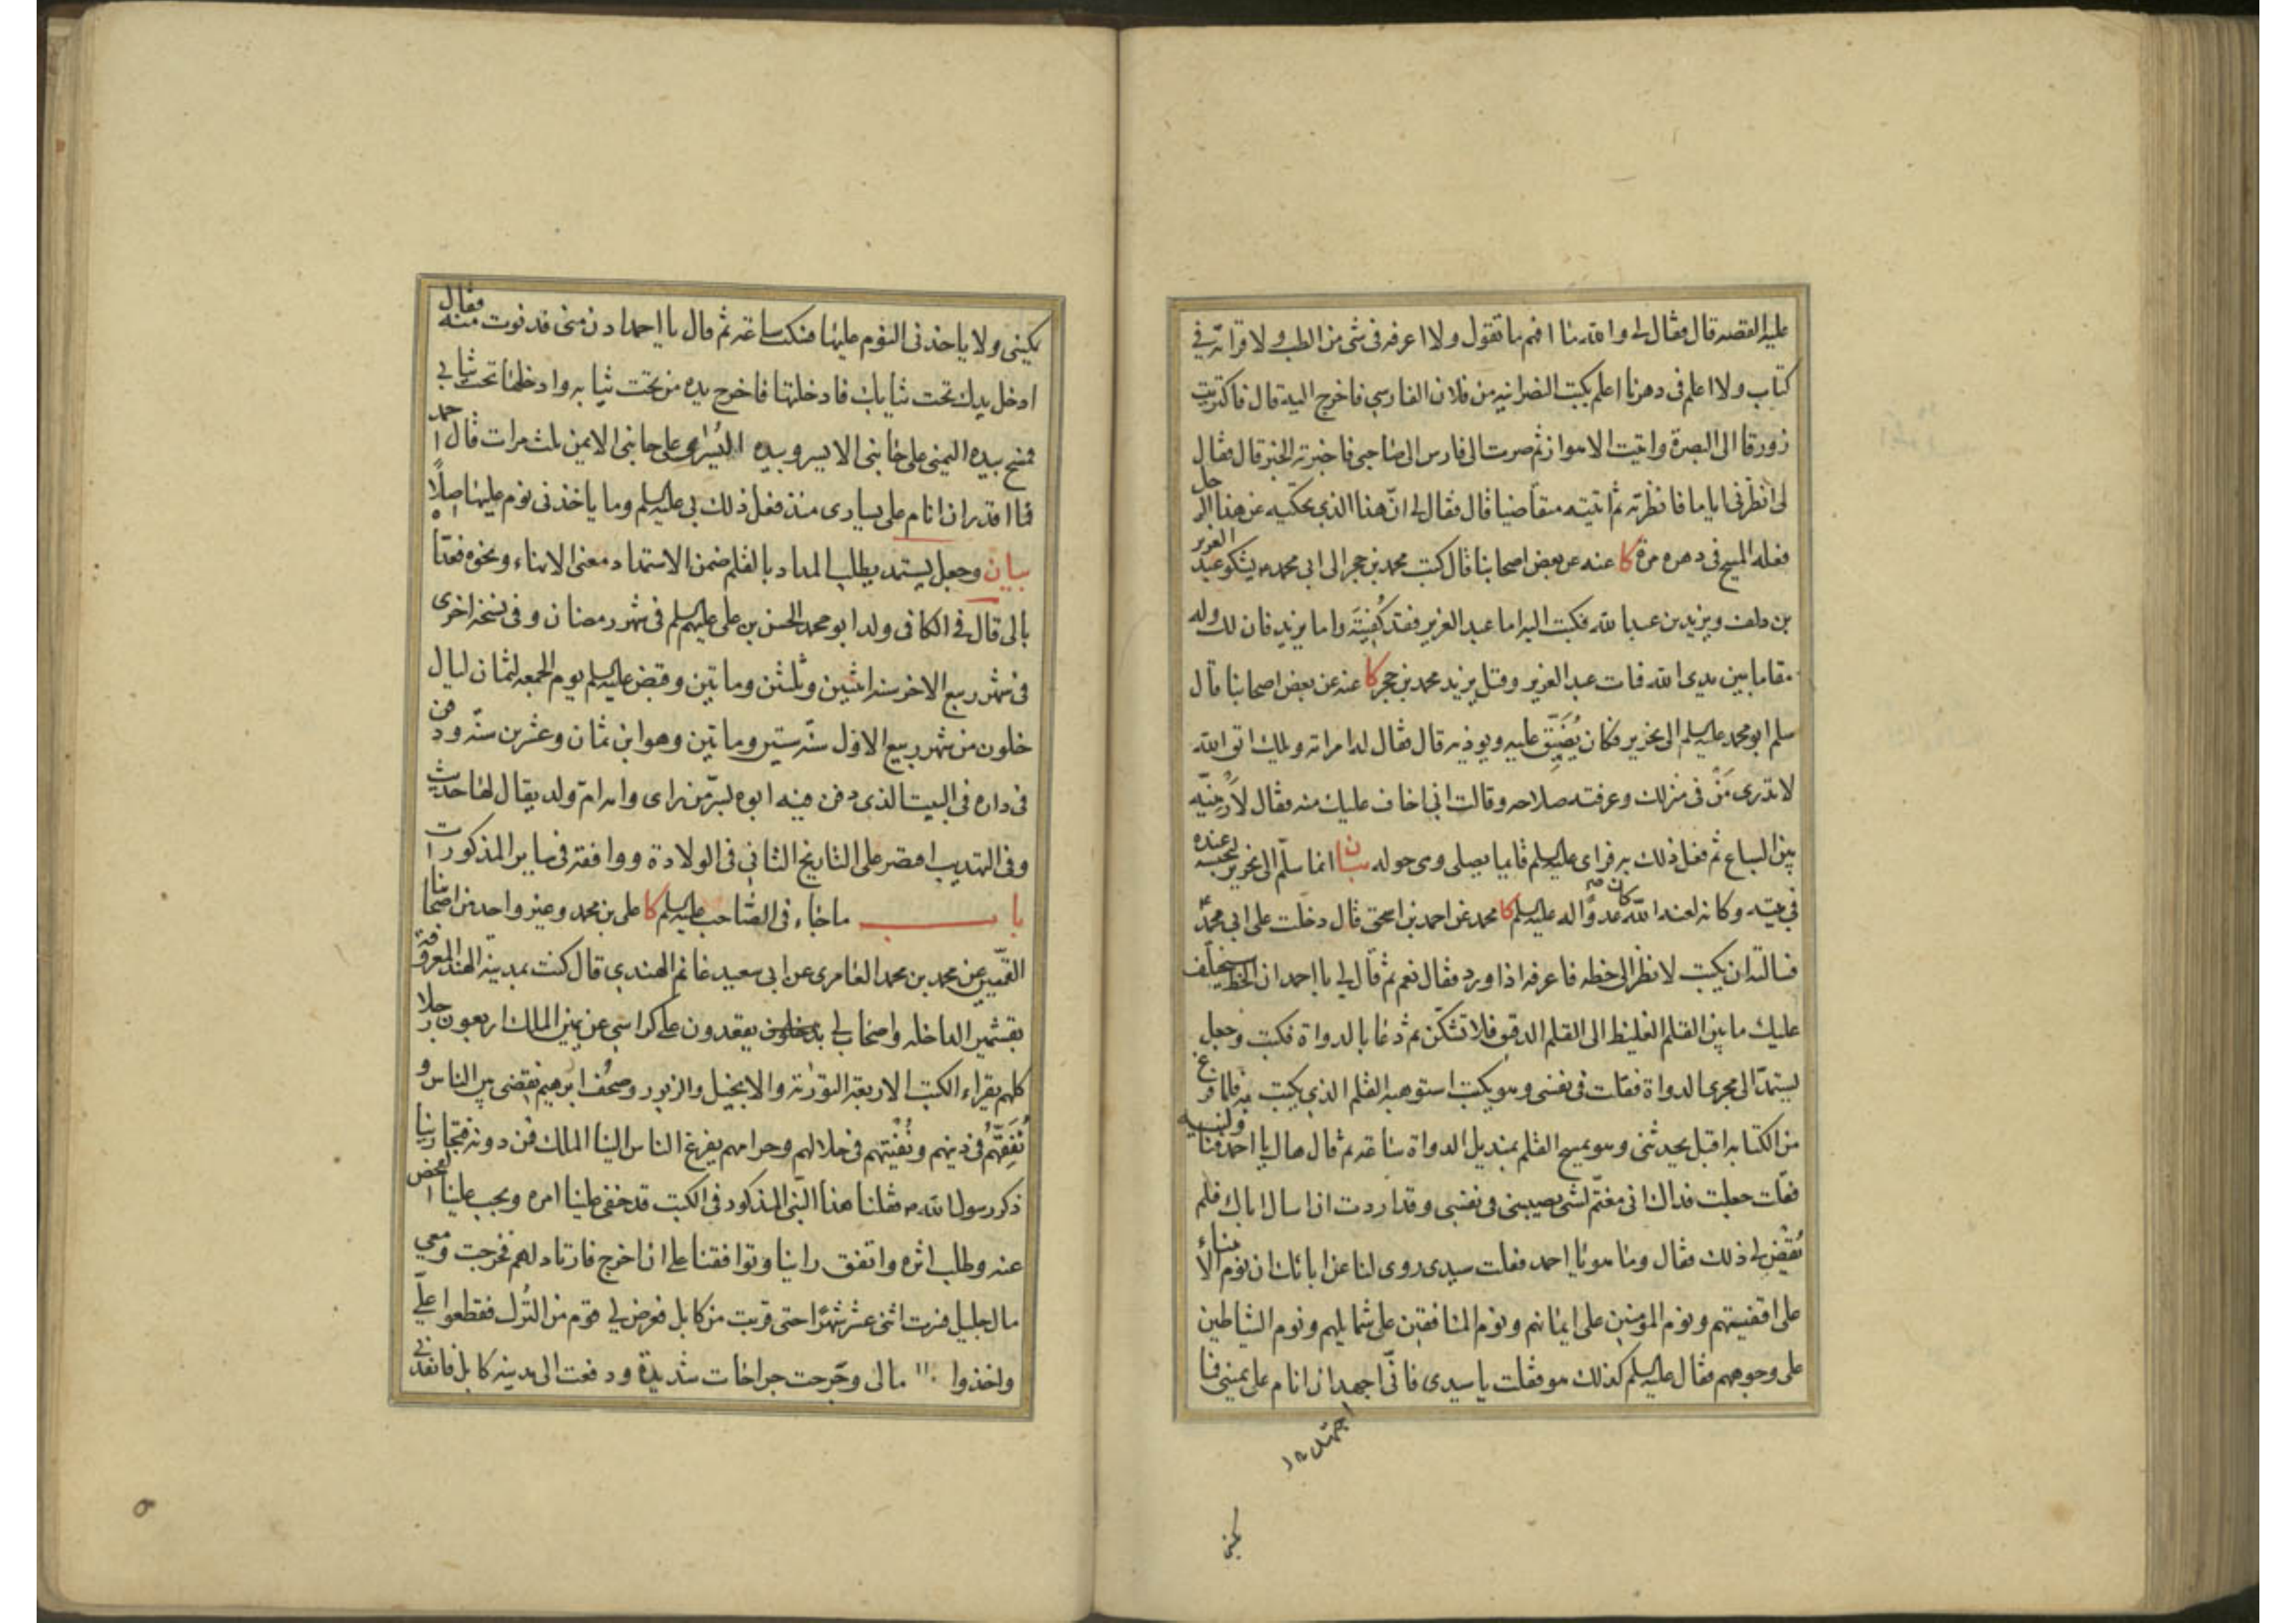 عليه القصه قال فقال لى والله ما افهم ما تقول ولا اعرفه فى شئ من الطب ولا قراته فى
كتاب ولا اعلم فى دهرنا اعلم بكتب النصرانيه من فلان الفارسي فاخرج اليه قال فاكتريت
زورقا الى البصرة واتيت الاهواز ثم صرت الى فارس الى صاحبى فاخبرته الخبر قال فقال
لى انظرنى اياما فانظرته ثم اتيته متقاضيا قال فقال لى ان هذا الذى تحكيه عن هذا الرجل
فعله المسيح فى دهره مرة كا عنه عن بعض اصحابنا قال كتب محمد بن حجر الى ابى محمد ص يشكو عبد العزيز
بن دلف ويزيد بن عبد الله فكتب اليه اما عبد العزيز فقد كُفيتَه واما يزيد فان لك وله
مقاما بين يدى الله فمات عبد العزيز وقتل يزيد محمد بن حجر كا عنه عن بعض اصحابنا قال
سلم ابو محمد عليه السلم الى نحرير فكان يُضَيِّق عليه ويوذيه قال فقال له امراته ويلك اتق الله
لا تدرى مَنْ فى منزلك وعرفته صلاحه وقالت انى اخاف عليك منه فقال لاَرمينّه
بين السباع ثم فعل ذلك به فراى عليه السلم قايما يصلى وهى حوله بيان انما سلّم الى نحرير ليحبسه عنده
فى بيته وكانه لعنه الله كان عدوًّا له عليه السلم كا محمد عن احمد بن اسحق قال دخلت على ابى محمد ع
فسالته ان يكتب لانظر الى خطه فاعرفه اذا ورد فقال نعم ثم قال لى يا احمد ان الخط سيختلف
عليك ما بين القلم الغليظ الى القلم الدقيق فلا تشكّن ثم دعا بالدواة فكتب وجعل
يستمدّ الى مجرى الدواة فقلت فى نفسى وهو يكتب استوهبه القلم الذى يكتب به فلما فرغ
من الكتابه اقبل يحدثنى وهو يمسح القلم بمنديل الدواة ساعه ثم قال هاك يا احمد فناولنيه
فقلت جعلت فداك انى مغتمّ لشى يصيبنى فى نفسى وقد اردت ان اسال اباك فلم
يُقضَ لى ذلك فقال وما هو يا احمد فقلت سيدى روى لنا عن ابائك ان نوم الانبياء
على اقفيتهم ونوم المؤمنين على ايمانهم ونوم المنافقين على شمايلهم ونوم الشياطين
على وجوههم فقال عليه السلم كذلك هو فقلت يا سيدى فانّى اجهد ان انام على يمينى فما
اجتهد
يمكننى ولا ياخذنى النوم عليها فسكت ساعه ثم قال يا احمد ادن منى فدنوت منه فقال
ادخل يدك تحت ثيابك فادخلتها فاخرج يده من تحت ثيابه وادخلها تحت ثيابى
فمسح بيده اليمنى على جانبى الايسر وبيده اليُسرى على جانبى الايمن ثلث مرات قال احمد
فما اقدر ان انام على يسارى منذ فعل ذلك بى عليه السلم وما ياخذنى نوم عليها اصلًا
بيان وجعل يستمد يطلب المداد بالقلم ضمن الاستمداد معنى الانهاء ونحوه فعدّا
بالى قال فى الكافى ولد ابو محمد الحسن بن على عليهم السلم فى شهر رمضان وفى نسخه اخرى
فى شهر ربيع الاخر سنه اثنين وثلثين وماتين وقبض عليه السلم يوم الجمعه لثمان ليال
خلون من شهر ربيع الاول سنه ستين وماتين وهو ابن ثمان وعشرين سنّه ودفن
فى داره فى البيت الذى دفن فيه ابوه بسرّ من راى وامه امّ ولد يقال لها حديث
وفى التهذيب اقتصر على التاريخ الثانى فى الولادة ووافقه فى ساير المذكورات
باب ما جاء فى الصاحب عليه السلم كا على بن محمد وعن غير واحد من اصحابنا
القمّيين عن محمد بن محمد العامرى عن ابى سعيد غانم الهندى قال كنت بمدينه الهند المعروفة
بقشمير الداخله واصحاب لى يقعدون على كراسى عن يمين الملك اربعون رجلا
كلهم يقراء الكتب الاربعة التورٰته والانجيل والزبور وصحُف ابرهيم نقضى بين الناس و
نُفَقِّهُهُم فى دينهم ونُفْتيهم فى حلالهم وحرامهم يفزع الناس الينا الملك فمن دونه فتجارينا
ذكر رسول الله ص فقلنا هذا النّبى المذكور فى الكتب قد خفى علينا امره ويجب علينا الفحص
عنه وطلب اثره واتفق راينا وتوافقنا على ان اخرج فارتاد لهم فخرجت ومعى
مال جليل فسرت اثنى عشر شهرًا حتى قربت من كابل فعرض لى قوم من التُرك فقطعوا علىّ
واخذوا مالى وجُرحت جراحات شديدة ودفعت الى مدينه كابل فانفذنى